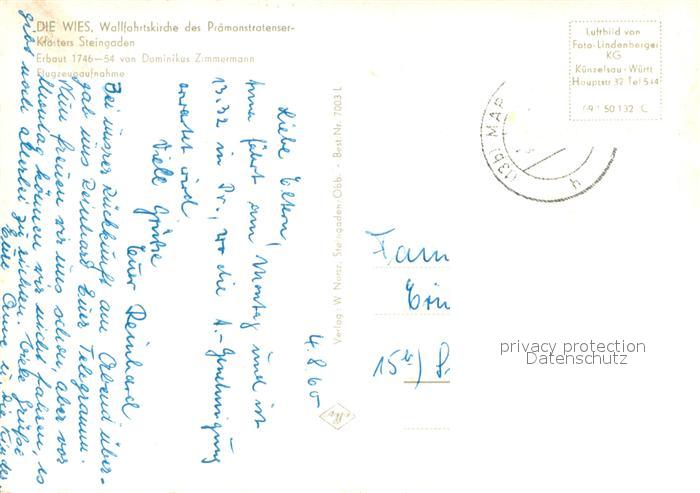 DIE WIES, Wallfahrtskirche des Prämonstratenser-
Klosters Steingaden
Erbaut 1746—54 von Dominikus Zimmermann
Flugzeugaufnahme
Luftbild von
Foto-Lindenberger
KG
Künzelsau-Württ
Hauptstr 32 Tel 544
Verlag: W Nortz, Steingaden-Obb. - Best-Nr. 7003 L
4.8.60
Liebe Eltern,
Anne fährt am Montag und ist
13.32 in Pr., wo die A.-Genehmigung
erwartet wird
Viele Grüße
Euer Reinhard
Bei unsrer Rückkunft am Abend über-
gab uns Reinhard Euer Telegramm.
Nun freuen wir uns schon, aber vor
Montag können wir nicht fahren, es
gibt noch allerlei zu richten. Viele Grüße
Eure Anne u. die Kinder
Fam
15
(13b) MAR
privacy protection
Datenschutz